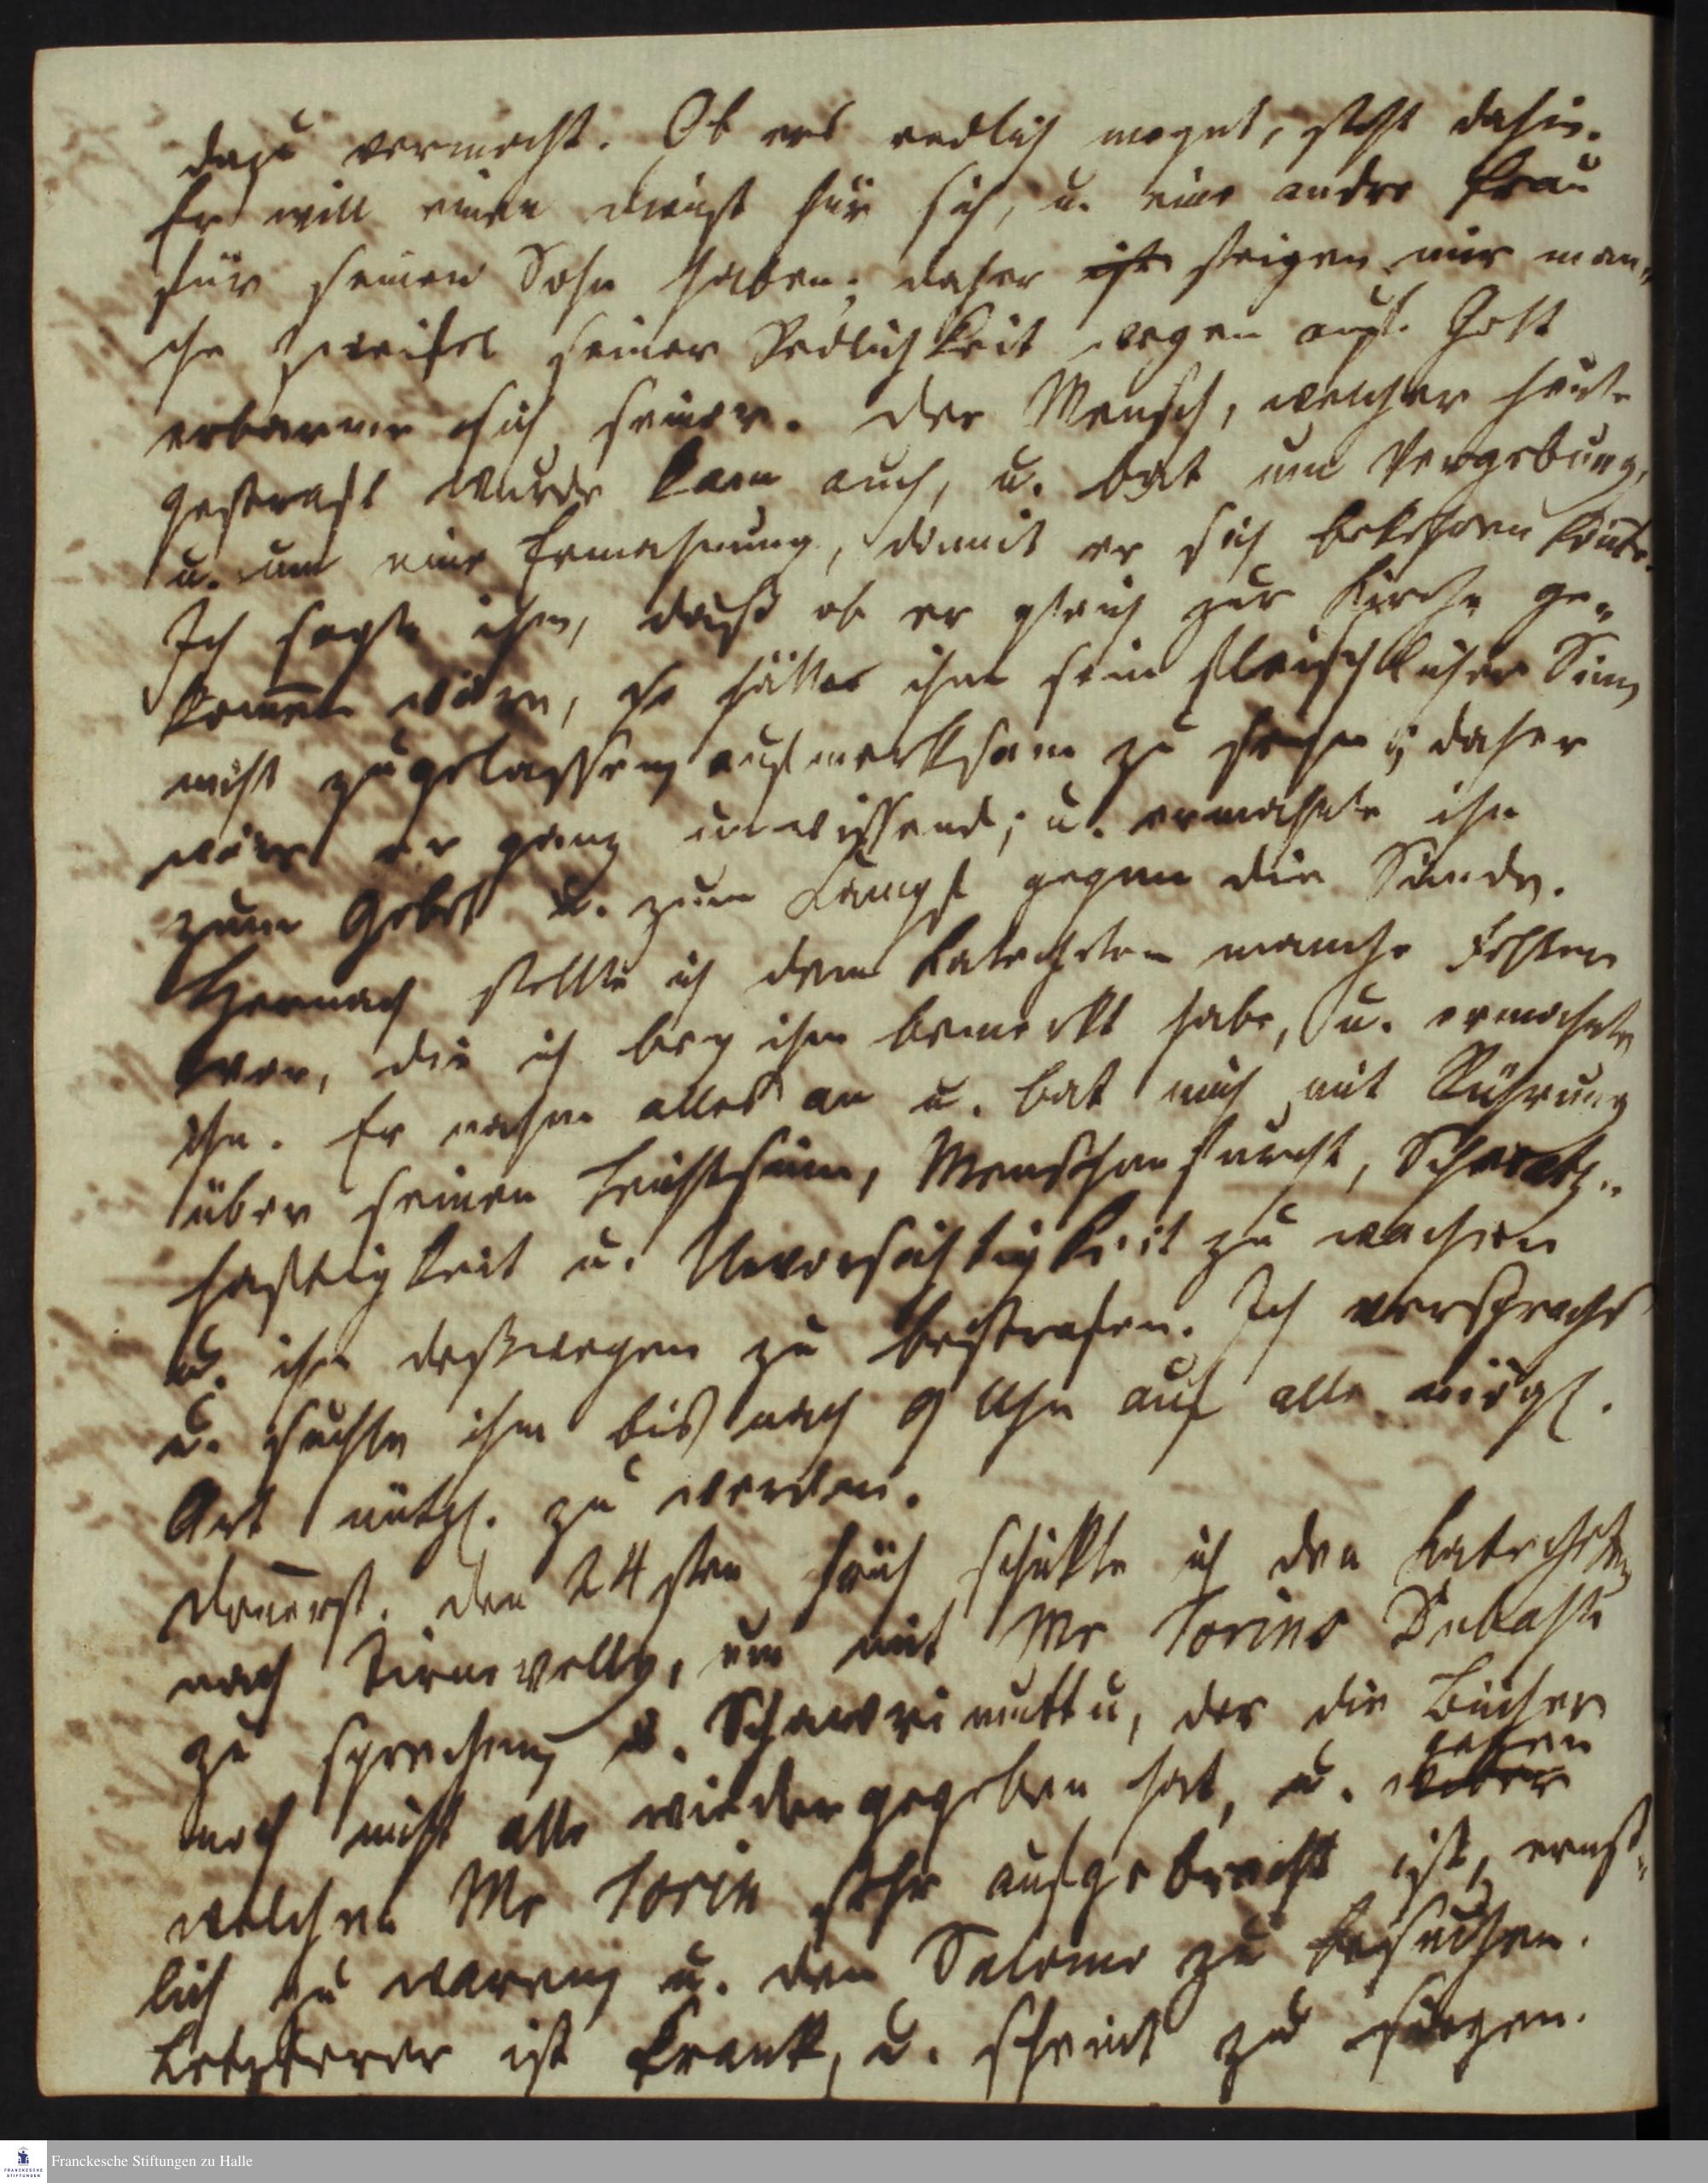 dazu vermocht. Ob ers redlich meynt, steht dahin.
Er will einen Dienst für sich, u. eine andre Frau
für seinen Sohn haben; daher ist steigen mir man„
che Zweifel seiner Redlichkeit wegen auf. Gott
erbarme sich seiner. Der Mensch, welcher heute
gestraft wurde kam auch, u. bat um Vergebung,
u. um eine Ermahnung, damit er sich bekehren könte.
Ich sagte ihm, daß ob er gleich zur Kirche ge„
kom̄en wäre, so hätte ihm sein fleischlicher Sinn
nicht zugelassen aufmerksam zu seyn; daher
wäre er ganz unwissend; u. ermahnte ihn
zum Gebet u. zum Kampf gegen die Sünde.
Hernach stellte ich dem Katecheten manche Fehler
vor, die ich bey ihm bemerkt habe, u. ermahnte
ihn. Er nahm alles an u. bat mich mit Rührung
über seinen Leichtsinn, Menschenfurcht, Schwatz„
haftigkeit u. Unvorsichtigkeit zu wachen
u. ihn deßwegen zu bestrafen. Ich versprachs
u. suchte ihm bis nach 9 Uhr auf alle mögl.
Art nützl. zu werden.
Don̄erst. den 24sten früh schickte ich den Katecheten
nach Tirunevelly, um mit Mr Torins Dubash
zu sprechen, u. Schawrimuttu, der die Bücher
noch nicht alle wiedergegeben hat, u. über gegen
welchen Mr Torin sehr aufgebracht ist, ernst„
lich zu warnen, u. den Salomo zu besuchen.
Letzterer ist krank, u. scheint zu
Franckesche Stiftungen zu Halle